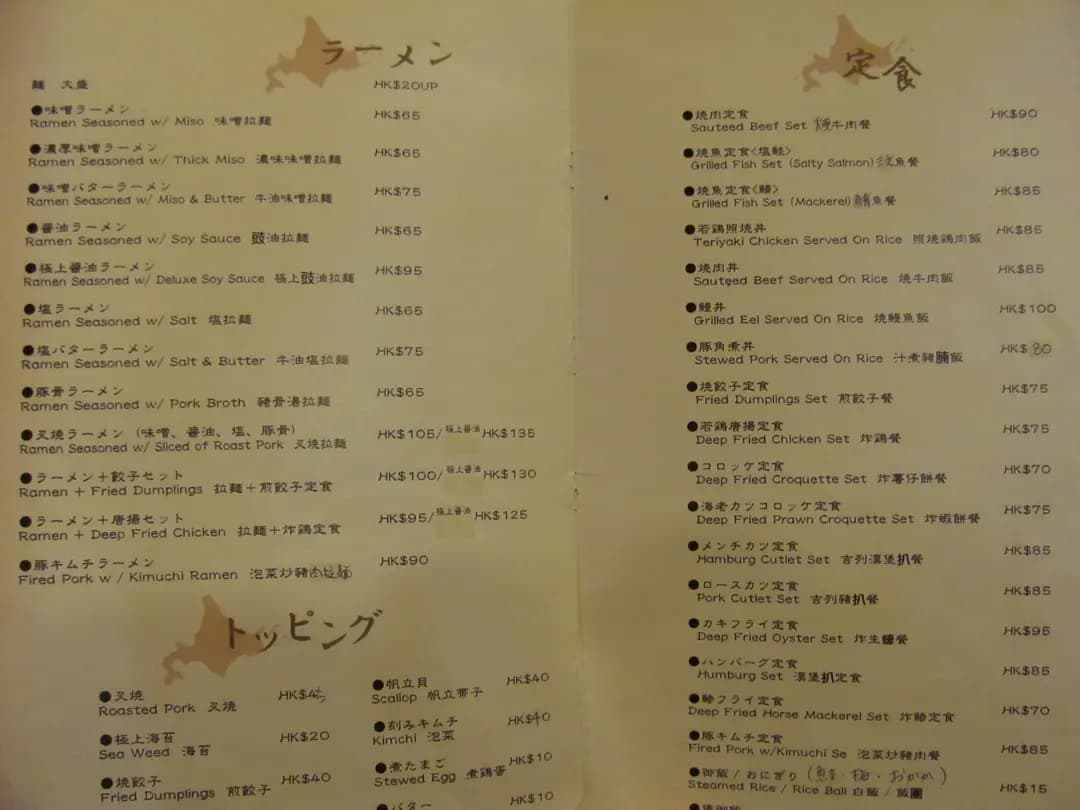 ラーメン
麺 大盛 HK$20UP
●味噌ラーメン HK$65
Ramen Seasoned w/ Miso 味噌拉麵
●濃厚味噌ラーメン HK$65
Ramen Seasoned w/ Thick Miso 濃味味噌拉麵
●味噌バターラーメン HK$75
Ramen Seasoned w/ Miso & Butter 牛油味噌拉麵
●醤油ラーメン HK$65
Ramen Seasoned w/ Soy Sauce 豉油拉麵
●極上醤油ラーメン HK$95
Ramen Seasoned w/ Deluxe Soy Sauce 極上豉油拉麵
●塩ラーメン HK$65
Ramen Seasoned w/ Salt 塩拉麵
●塩バターラーメン HK$75
Ramen Seasoned w/ Salt & Butter 牛油塩拉麵
●豚骨ラーメン HK$65
Ramen Seasoned w/ Pork Broth 豬骨湯拉麵
●叉焼ラーメン (味噌、醤油、塩、豚骨) HK$105/極上醤油HK$135
Ramen Seasoned w/ Sliced of Roast Pork 叉焼拉麵
●ラーメン+餃子セット HK$100/極上醤油HK$130
Ramen + Fried Dumplings 拉麵+煎餃子定食
●ラーメン+唐揚セット HK$95/極上醤油HK$125
Ramen + Deep Fried Chicken 拉麵+炸鶏定食
●豚キムチラーメン HK$90
Fired Pork w / Kimuchi Ramen 泡菜炒豬肉拉麵
トッピング
●叉焼 HK$45
Roasted Pork 叉焼
●極上海苔 HK$20
Sea Weed 海苔
●焼餃子 HK$40
Fried Dumplings 煎餃子
●帆立貝 HK$40
Scallop 帆立帶子
●刻みキムチ HK$40
Kimchi 泡菜
●煮たまご HK$10
Stewed Egg 煮鶏蛋
●バター HK$10
定食
●焼肉定食 HK$90
Sauteed Beef Set 燒牛肉餐
●焼魚定食<塩鮭> HK$80
Grilled Fish Set (Salty Salmon) 魚餐
●焼魚定食<鯖> HK$85
Grilled Fish Set (Mackerel) 鯖魚餐
●若鶏照焼丼 HK$85
Teriyaki Chicken Served On Rice 照燒鶏肉飯
●焼肉丼 HK$85
Sauteed Beef Served On Rice 燒牛肉飯
●鰻丼 HK$100
Grilled Eel Served On Rice 燒鰻魚飯
●豚角煮丼 HK$80
Stewed Pork Served On Rice 汁煮豬腩飯
●焼餃子定食 HK$75
Fried Dumplings Set 煎餃子餐
●若鶏唐揚定食 HK$75
Deep Fried Chicken Set 炸鶏餐
●コロッケ定食 HK$70
Deep Fried Croquette Set 炸薯仔餅餐
●海老カツコロッケ定食 HK$75
Deep Fried Prawn Croquette Set 炸蝦餅餐
●メンチカツ定食 HK$85
Hamburg Cutlet Set 吉列漢堡扒餐
●ロースカツ定食 HK$85
Pork Cutlet Set 吉列豬扒餐
●カキフライ定食 HK$95
Deep Fried Oyster Set 炸生蠔餐
●ハンバーグ定食 HK$85
Humburg Set 漢堡扒定食
●鯵フライ定食 HK$70
Deep Fried Horse Mackerel Set 炸鯵定食
●豚キムチ定食 HK$85
Fired Pork w/Kimuchi Se 泡菜炒豬肉餐
●御飯 / おにぎり (鮭・梅・おかか)
Steamed Rice / Rice Ball 白飯 / 飯團 HK$15